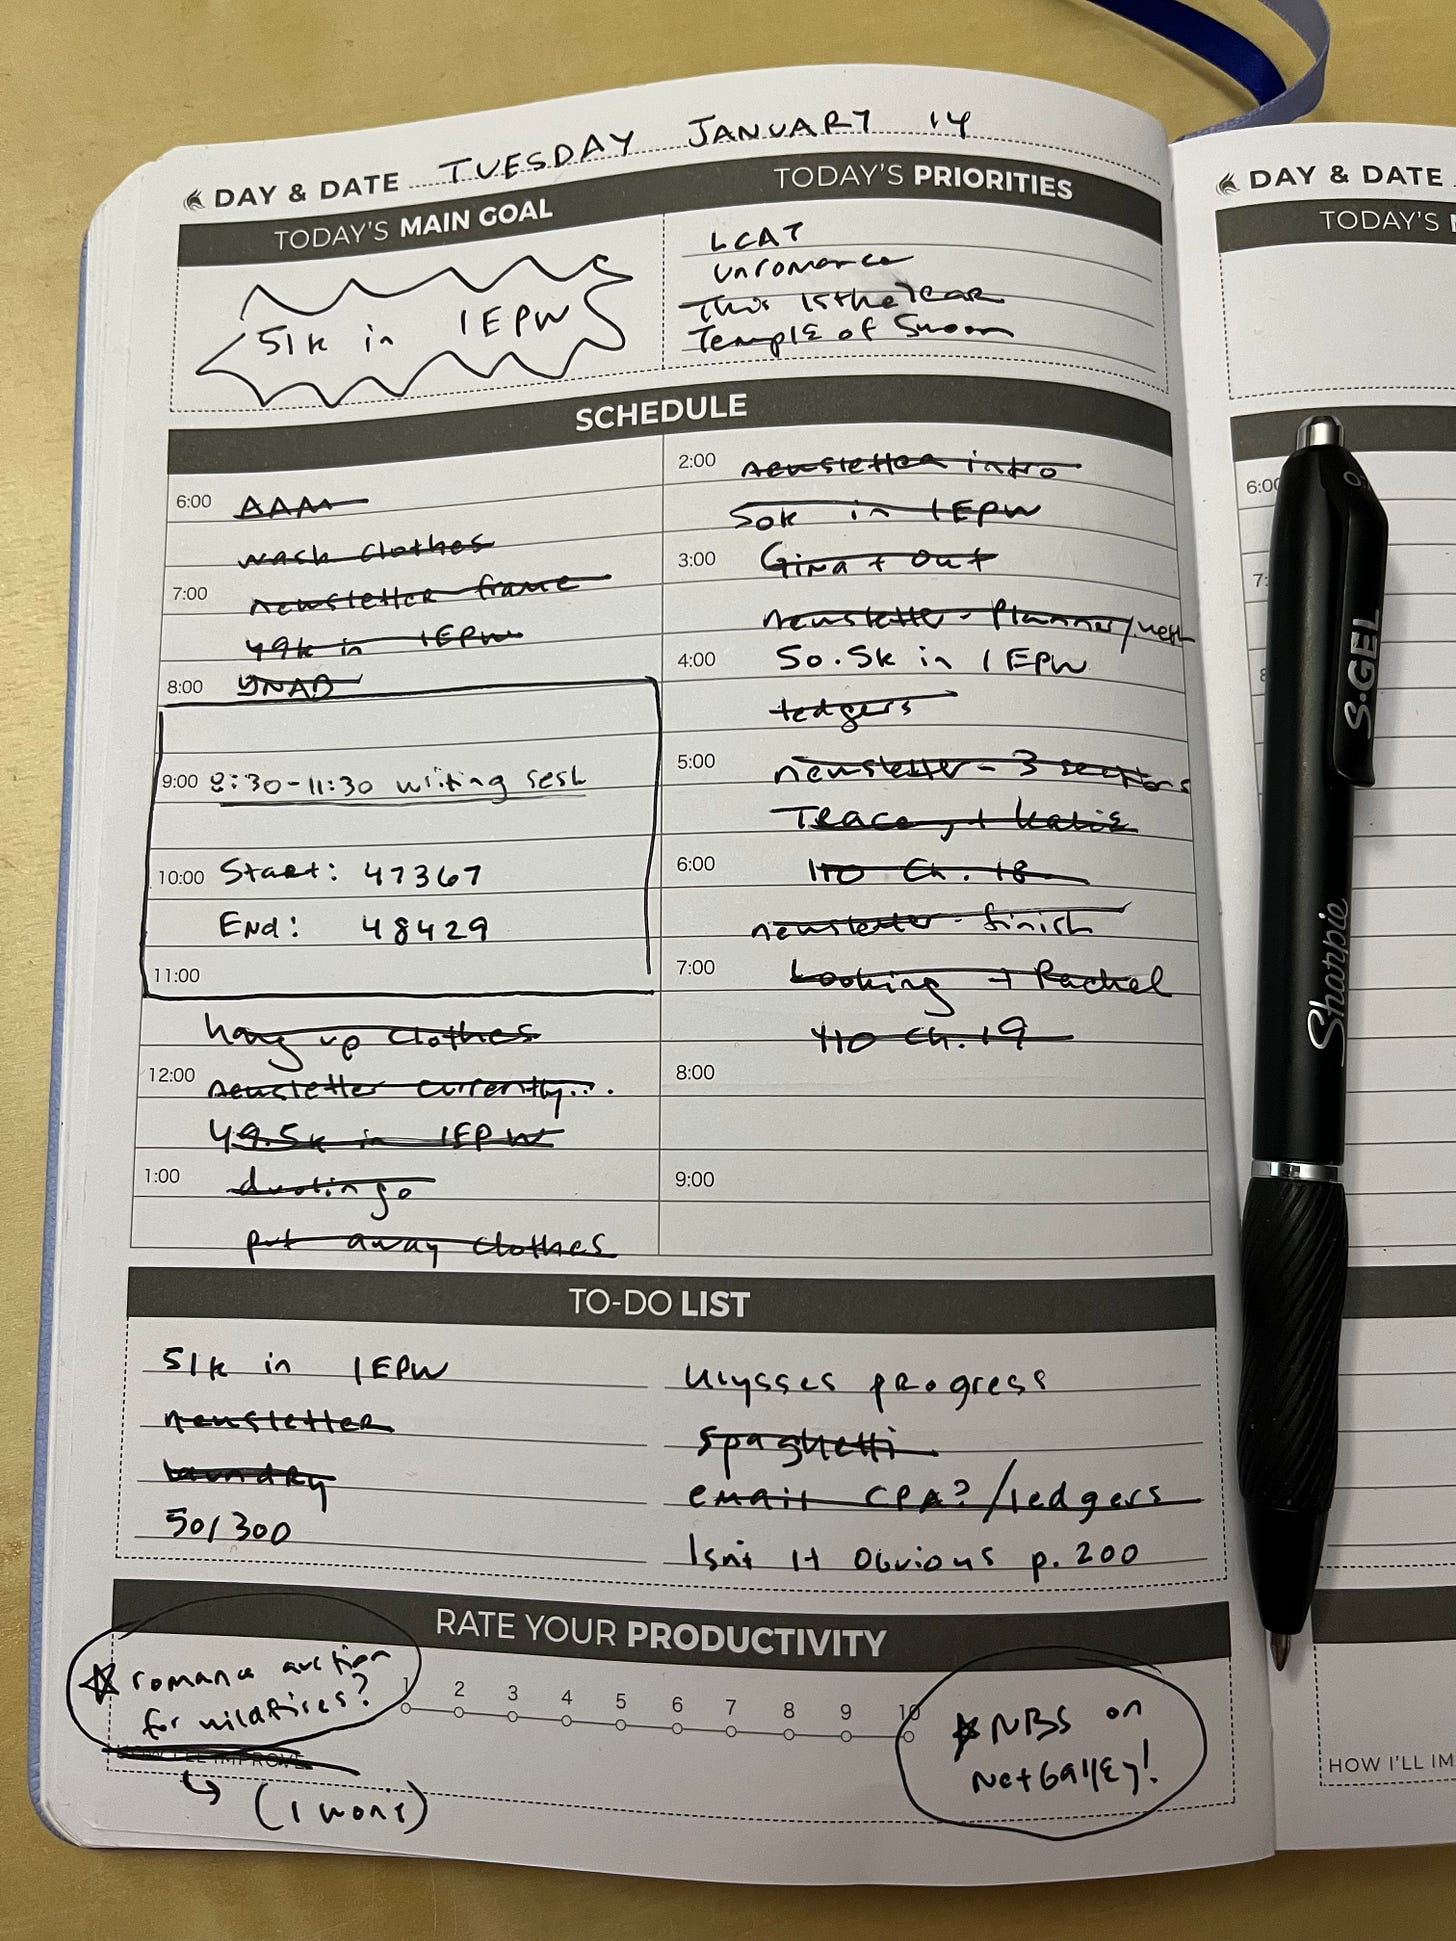 DAY & DATE TUESDAY JANUARY 14
TODAY'S MAIN GOAL
51k in 1EPW
TODAY'S PRIORITIES
LCAT
unromance
This Is the Year
Temple of Swoon
SCHEDULE
6:00 AAM
wash clothes
7:00 newsletter frame
49k in 1EPW
8:00 YNAB
9:00 8:30-11:30 writing sesh
10:00 Start: 47367
End: 48429
11:00
hang up clothes
12:00 newsletter currently...
49.5k in 1EPW
1:00 duolingo
put away clothes
2:00 newsletter intro
50k in 1EPW
3:00 Gina + out
newsletter - planner/
4:00 50.5k in 1EPW
ledgers
5:00 newsletter - 3 sections
Tracey + Katie
6:00 HO Ch. 18
newsletter - finish
7:00 + Rachel
HO Ch. 19
8:00
9:00
TO-DO LIST
51k in 1EPW
newsletter
laundry
50/300
Ulysses progress
spaghetti
email CPA? / ledgers
Isn't It Obvious p. 200
RATE YOUR PRODUCTIVITY
1 2 3 4 5 6 7 8 9 10
romance auction
for wildfires?
HOW I'LL IMPROVE
(I won't)
NBS on
NetGalley!
DAY & DATE
TODAY'S
6:00
7:
8
HOW I'LL IM
S·GEL
Sharpie